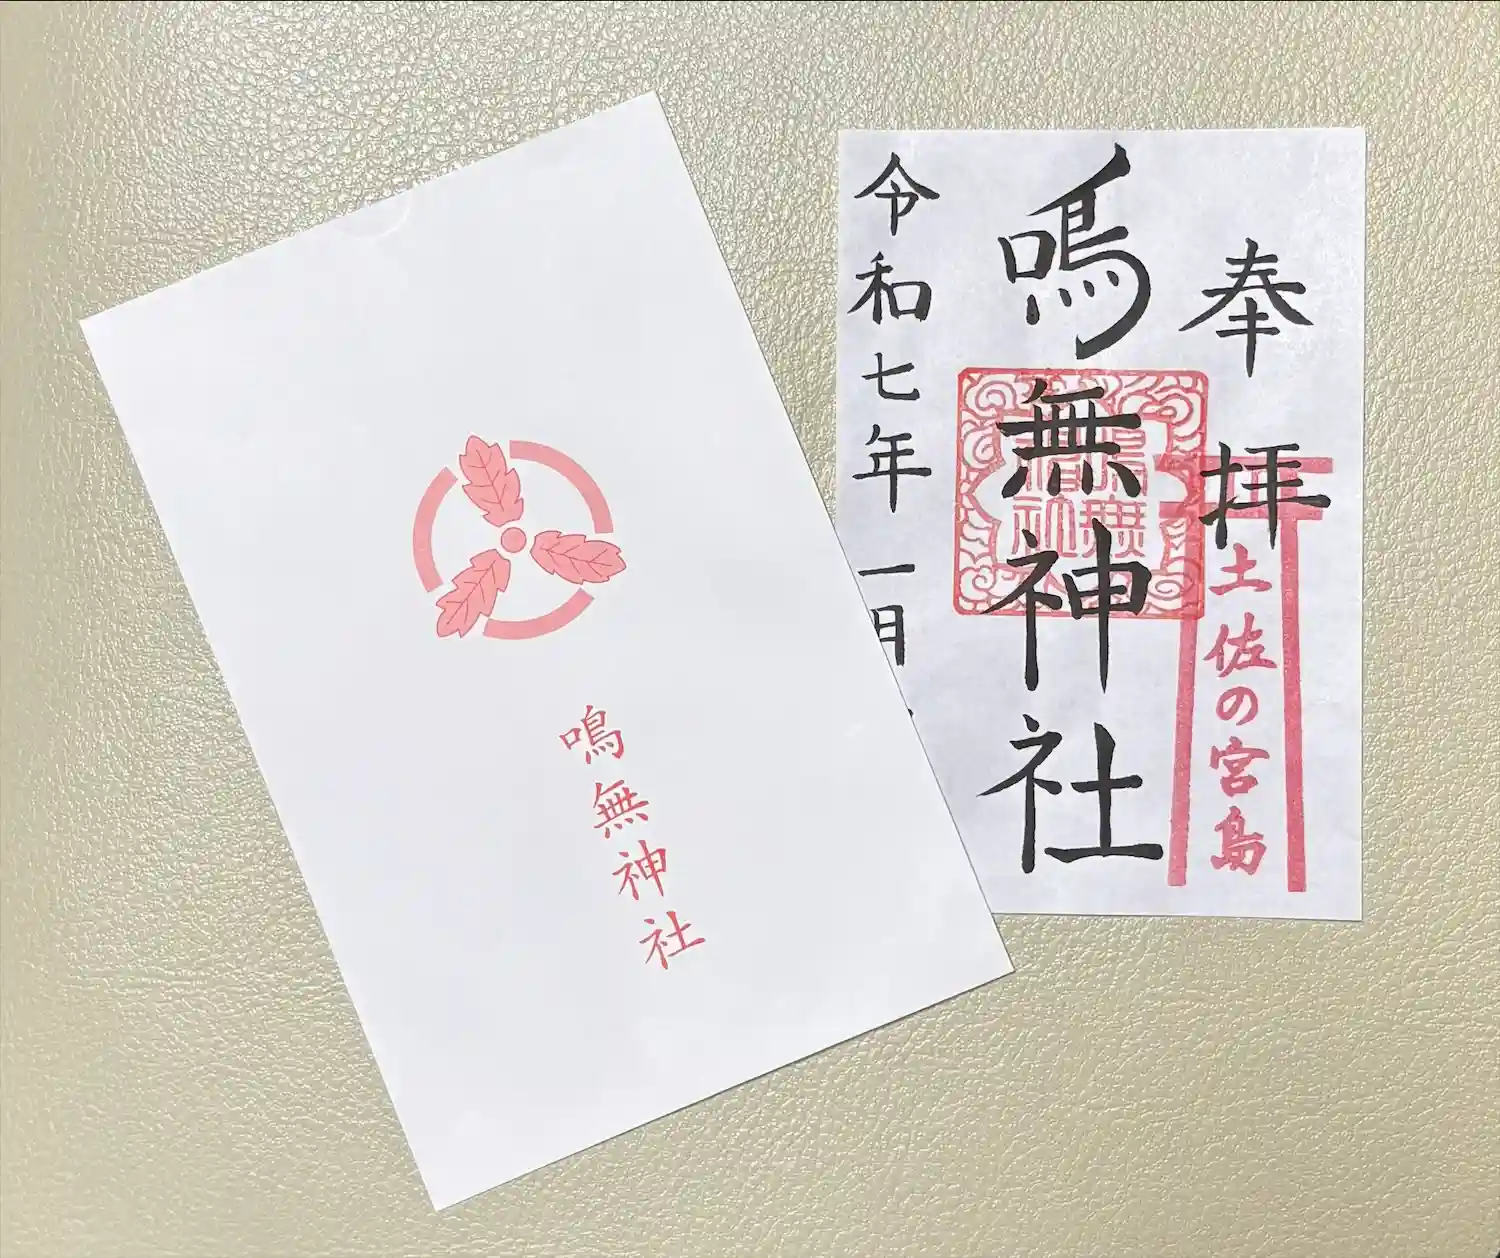 奉拝
土佐の宮島
鳴無神社
令和七年一月
鳴無神社